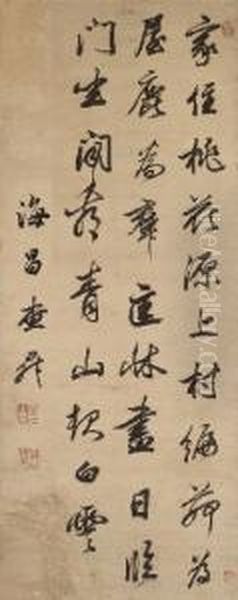 家住桃花源上村編茆為
屋鹿為群匡牀盡日臨
門坐閒看青山起白雲
海昌查昇